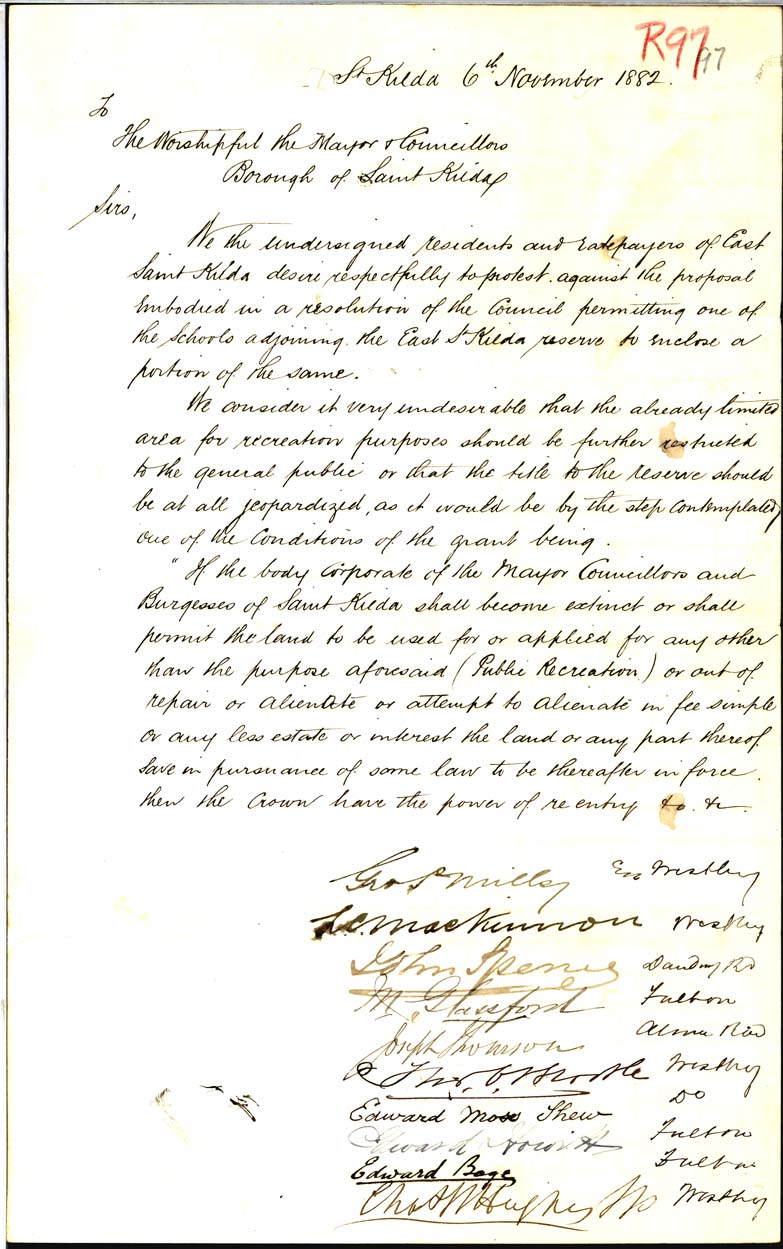 R97 97
St Kilda 6th November 1882.
To
The Worshipful the Mayor & Councillors
Borough of Saint Kilda
Sirs,
We the undersigned residents and ratepayers of East
Saint Kilda desire respectfully to protest against the proposal
embodied in a resolution of the Council permitting one of
the Schools adjoining the East St Kilda reserve to enclose a
portion of the same.
We consider it very undesirable that the already limited
area for recreation purposes should be further restricted
to the general public or that the title to the reserve should
be at all jeopardized, as it would be by the step contemplated
one of the Conditions of the grant being.
"If the body Corporate of the Mayor Councillors and
Burgesses of Saint Kilda shall become extinct or shall
permit the land to be used for or applied for any other
than the purpose aforesaid (Public Recreation) or out of
repair or alienate or attempt to alienate in fee simple
or any less estate or interest the land or any part thereof
save in pursuance of some law to be thereafter in force.
then the Crown have the power of re entry &c. &c.
Geo S Mills Westbury
L.C. Mackinnon Westby
John Spence Dandng Rd
M. Glassford Fulton
Joseph Thomson Alma Road
Westby
Edward Moss Shew Do
Edward Howitt Fulton
Edward Bage Fulton
Chas W Hughes Westby